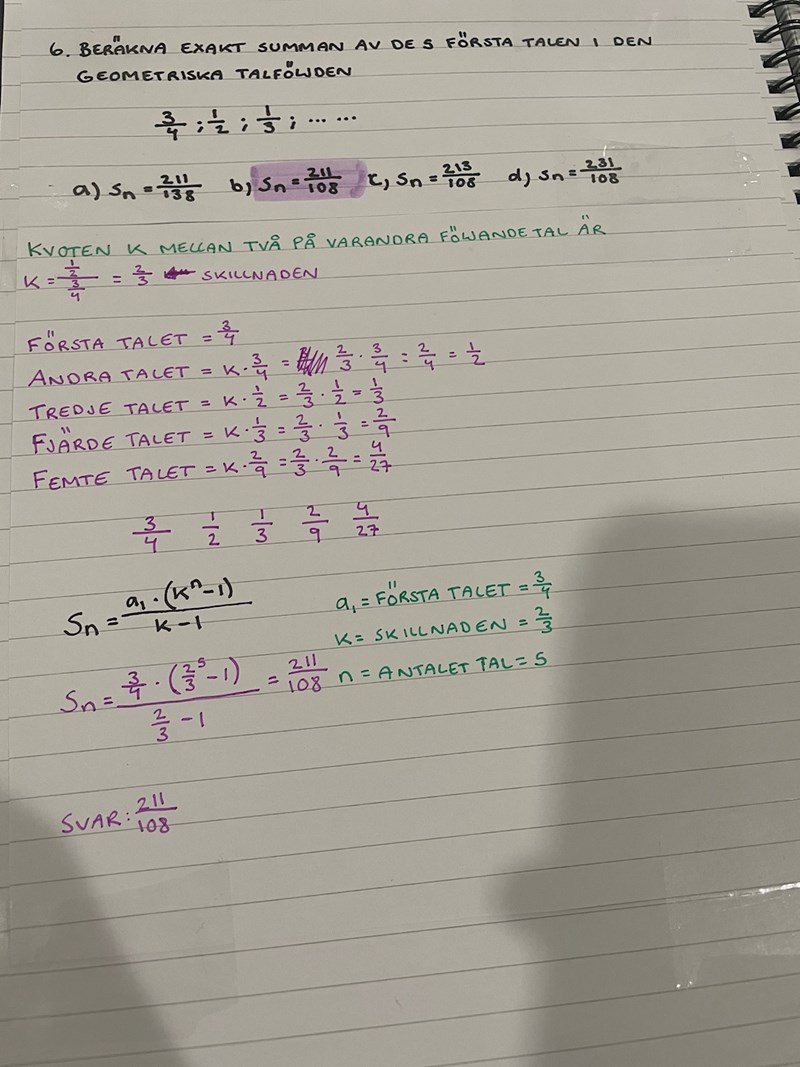 6. BERÄKNA EXAKT SUMMAN AV DE 5 FÖRSTA TALEN I DEN
GEOMETRISKA TALFÖLJDEN
3/4 ; 1/2 ; 1/3 ; ... ...
a) Sn = 211/138 b) Sn = 211/108 c) Sn = 213/108 d) Sn = 231/108
KVOTEN K MELLAN TVÅ PÅ VARANDRA FÖLJANDE TAL ÄR
K = (1/2)/(3/4) = 2/3 ← SKILLNADEN
FÖRSTA TALET = 3/4
ANDRA TALET = K · 3/4 = 2/3 · 3/4 = 2/4 = 1/2
TREDJE TALET = K · 1/2 = 2/3 · 1/2 = 1/3
FJÄRDE TALET = K · 1/3 = 2/3 · 1/3 = 2/9
FEMTE TALET = K · 2/9 = 2/3 · 2/9 = 4/27
3/4 1/2 1/3 2/9 4/27
Sn = a₁ · (kⁿ - 1) / (k - 1)
a₁ = FÖRSTA TALET = 3/4
K = SKILLNADEN = 2/3
n = ANTALET TAL = 5
Sn = 3/4 · (2/3⁵ - 1) / (2/3 - 1) = 211/108
SVAR: 211/108